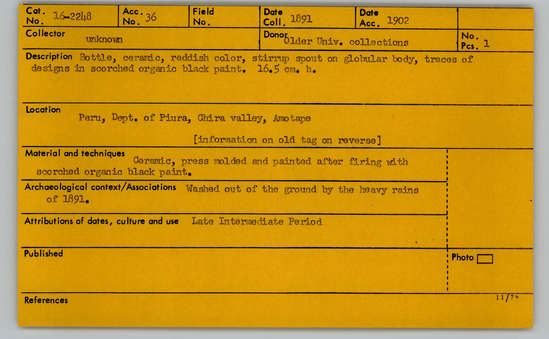 Cat. No. 16-2248 Acc. No. 36 Field No. Date Coll. 1891 Date Acc. 1902
Collector unknown Donor Older Univ. collections No. Pcs. 1
Description Bottle, ceramic, reddish color, stirrup spout on globular body, traces of
designs in scorched organic black paint. 16.5 cm. h.
Location
Peru, Dept. of Piura, Chira valley, Amotape
[information on old tag on reverse]
Material and techniques Ceramic, press molded and painted after firing with
scorched organic black paint.
Archaeological context/Associations Washed out of the ground by the heavy rains
of 1891.
Attributions of dates, culture and use Late Intermediate Period
Published Photo
References 11/76